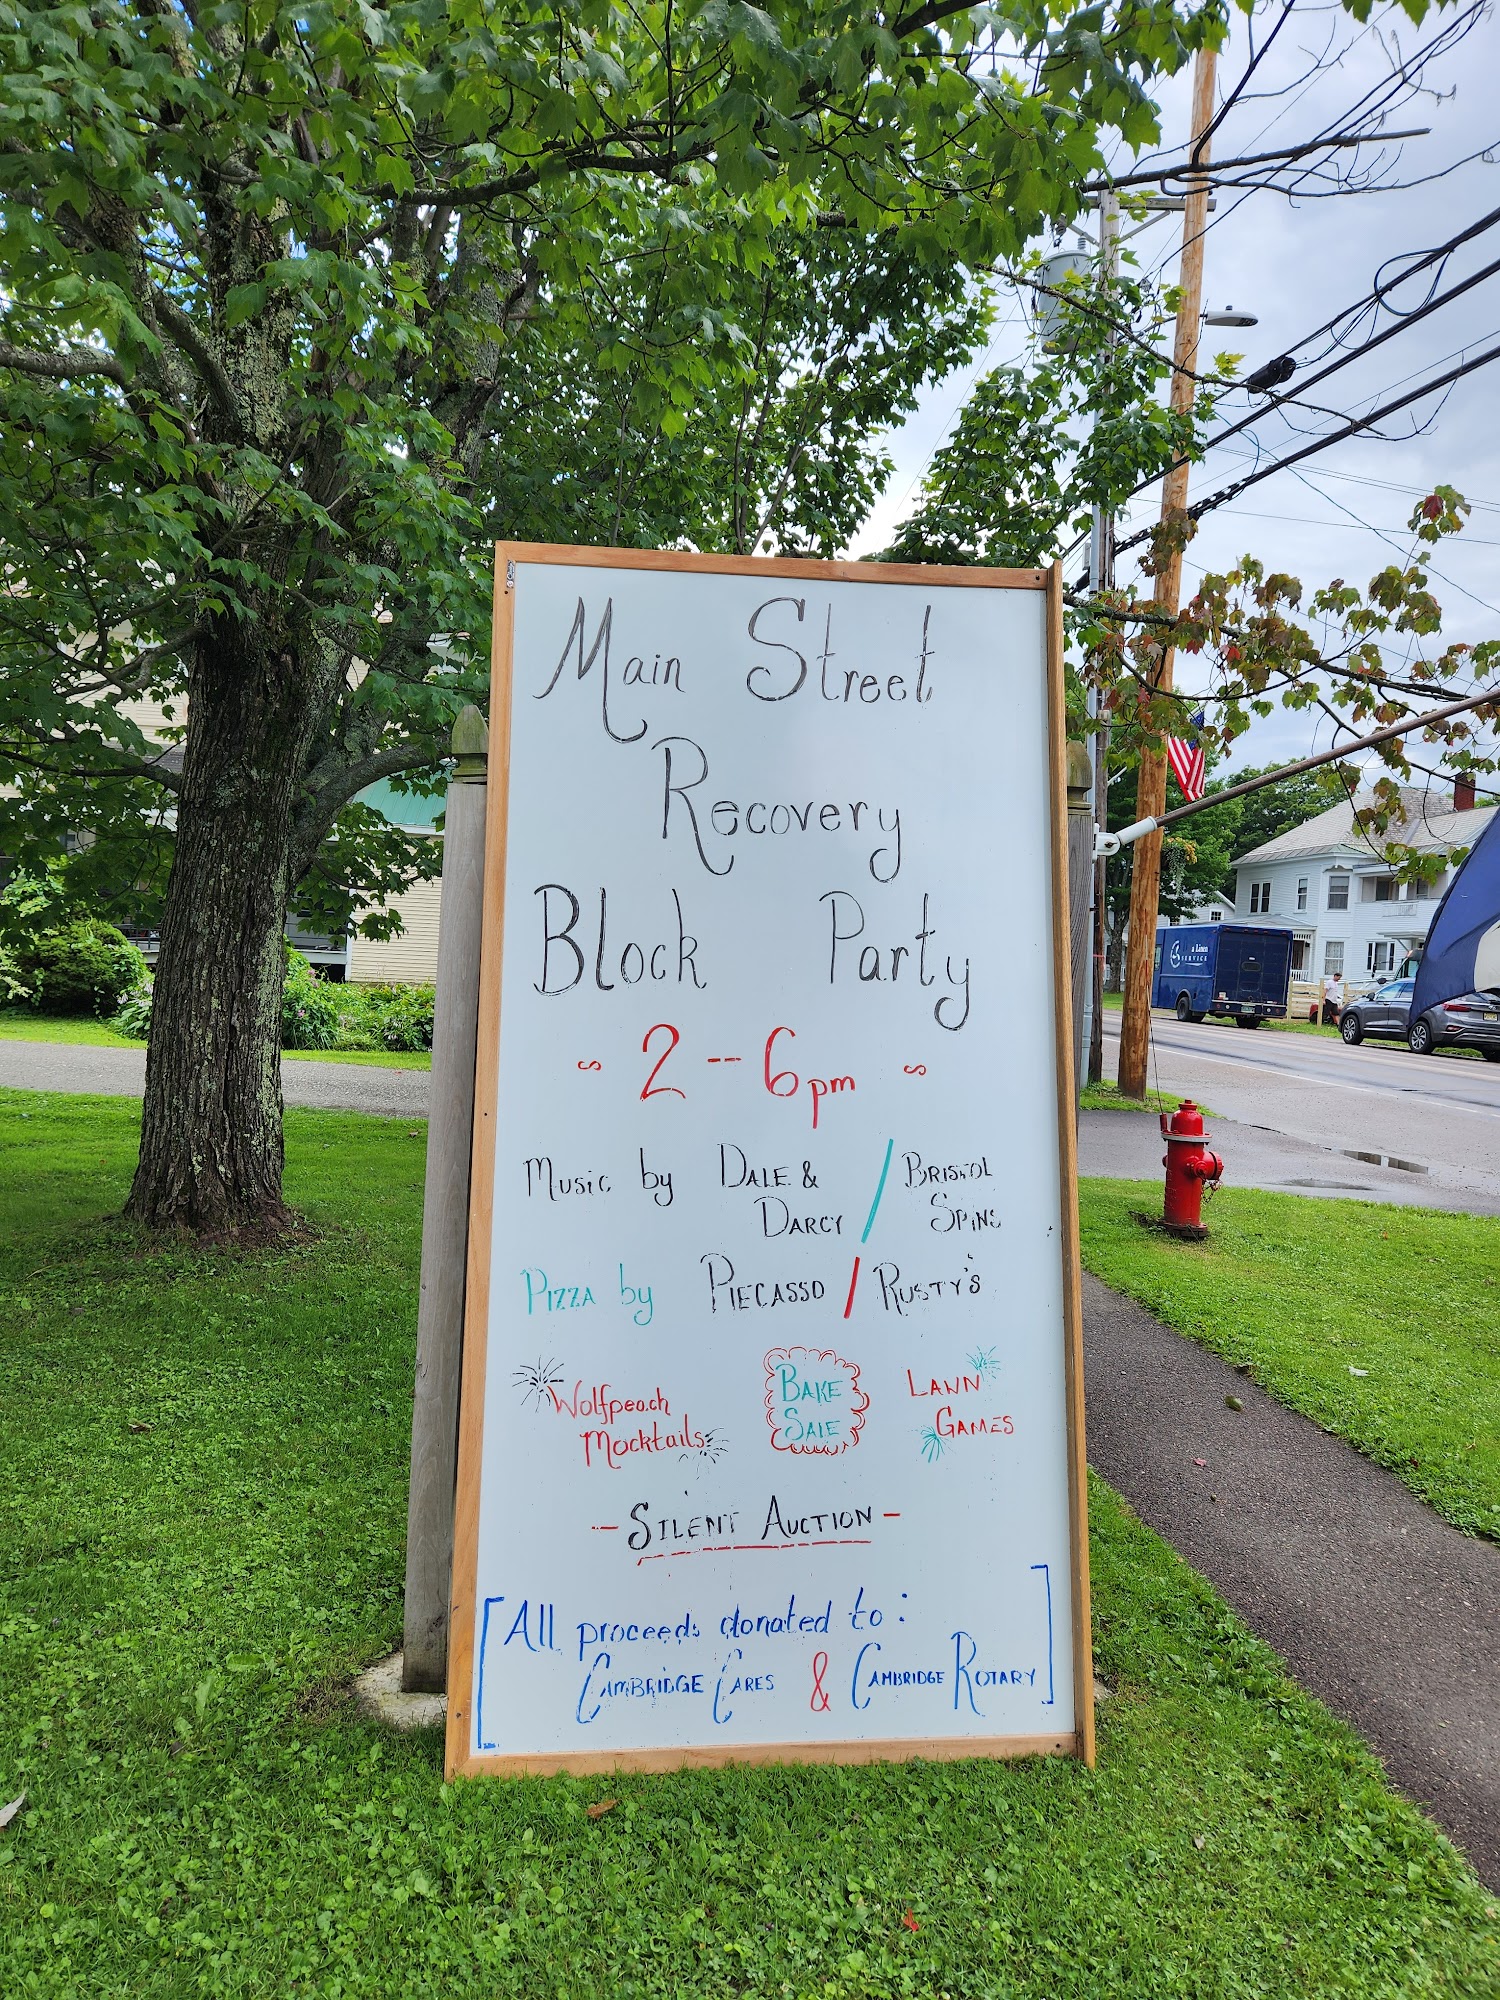 Main Street
Recovery
Block Party
~ 2 -- 6pm ~
Music by Dale & / Bristol
Darcy Spins
Pizza by Piecasso / Rusty's
Wolfpeach
Mocktails
Bake
Sale
Lawn
Games
- Silent Auction -
[All proceeds donated to:
Cambridge Cares & Cambridge Rotary]
a Linen
SERVICE